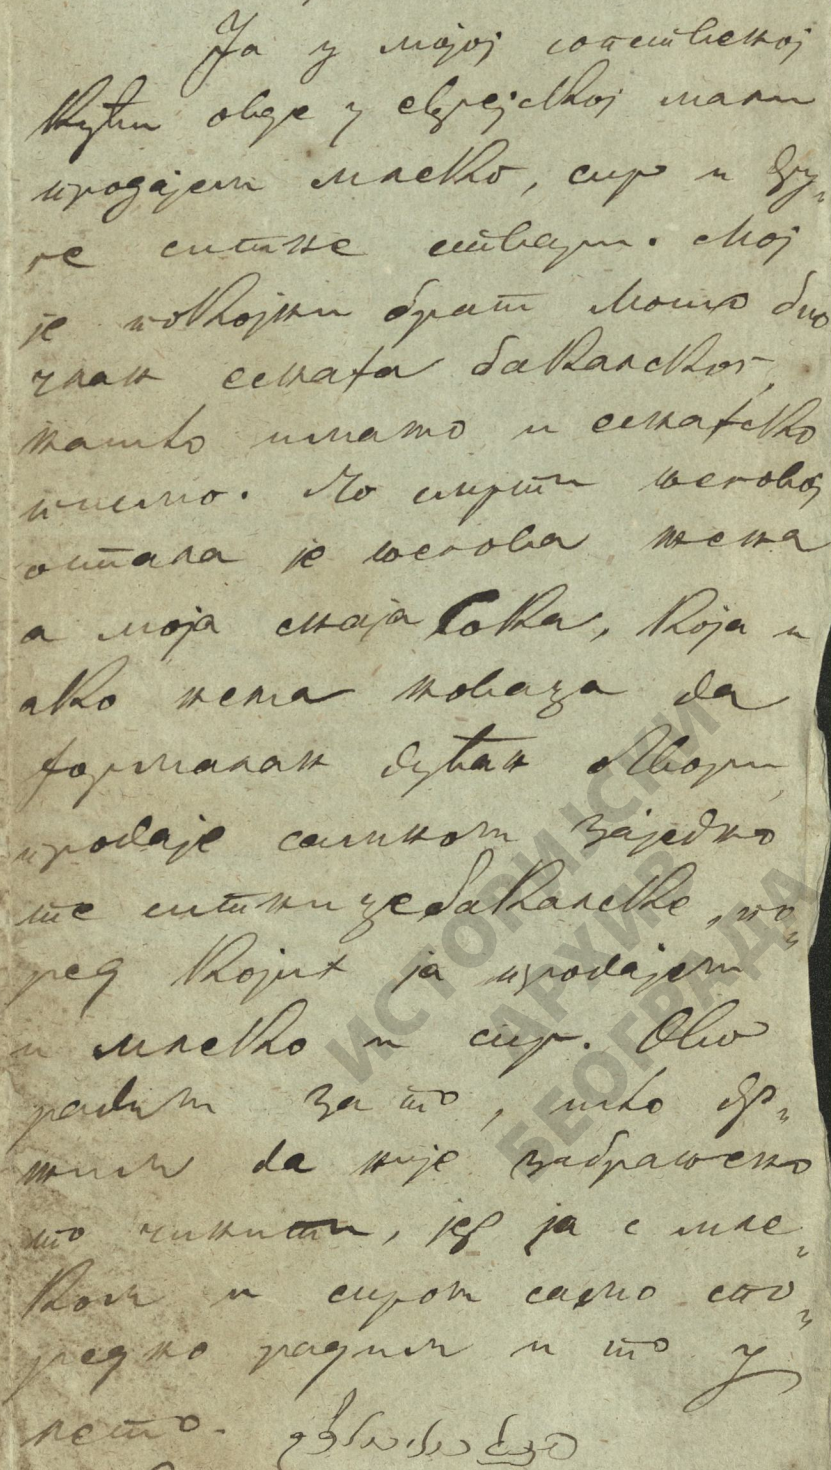 Ја у мојој сопственој
кући овде у еврејској мали
продајем млеко, сир и дру„
ге ситне ствари. Мој
је покојни брат Мошо био
члан еснафа бакалског,
нашто имамо и еснафско
писмо. По смрти његовој
остала је његова жена
а моја снаја Сока, која и
ако нема новаца да
формалан дућан отвори,
продаје самном заједно
те ситнице бакалске, по„
ред којих ја продајем
и млеко и сир. Ово
радим за то, што др„
жим да није забрањено
то чинити, јер ја с мле„
ком и сиром само спо„
редно радим и то у
лето.
ИСТОРИЈСКИ
АРХИВ
БЕОГРАДА